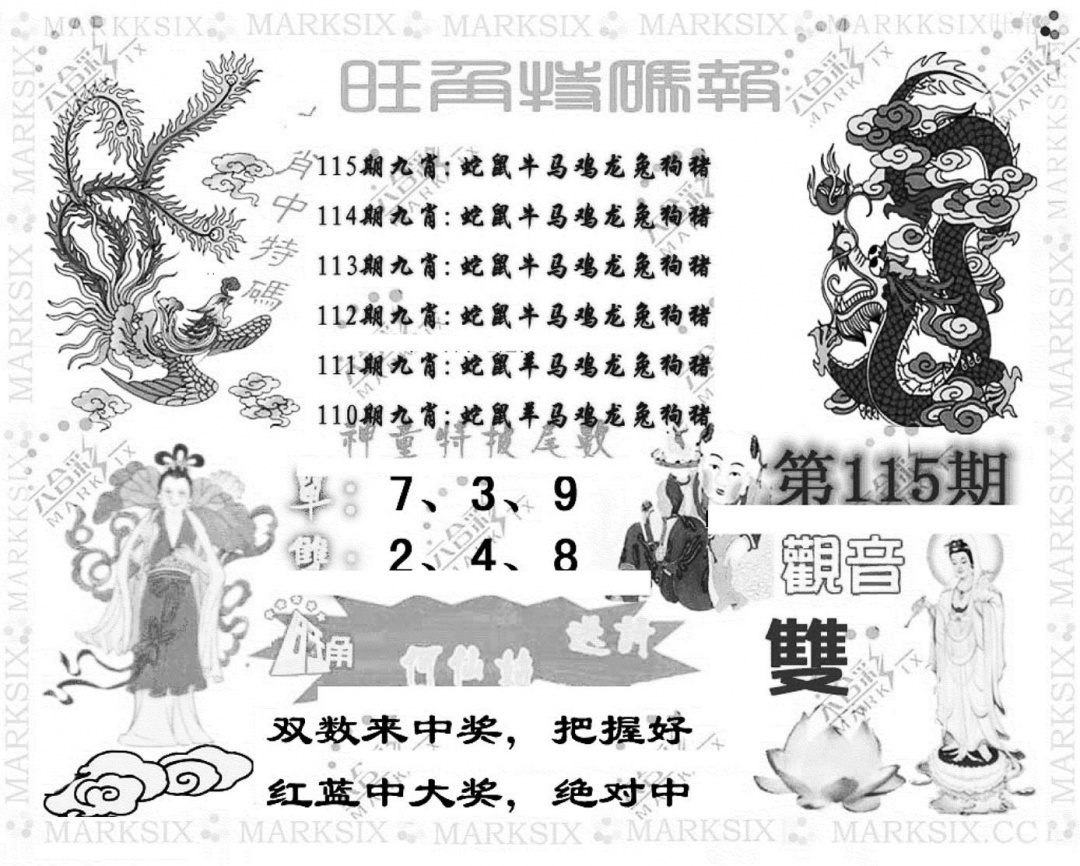 MARKKSIX MARKSIX MARKSIX MARKSIX MARKKSIX
旺角特碼報
肖中特碼
115期九肖:蛇鼠牛马鸡龙兔狗猪
114期九肖:蛇鼠牛马鸡龙兔狗猪
113期九肖:蛇鼠牛马鸡龙兔狗猪
112期九肖:蛇鼠牛马鸡龙兔狗猪
111期九肖:蛇鼠羊马鸡龙兔狗猪
110期九肖:蛇鼠羊马鸡龙兔狗猪
神童特报尾数
單:7、3、9
雙:2、4、8
第115期
觀音
雙
何仙姑
双数来中奖,把握好
红蓝中大奖,绝对中
MARKSIX MARKSIX MARKSIX MARKSIX MARKSIX.CC